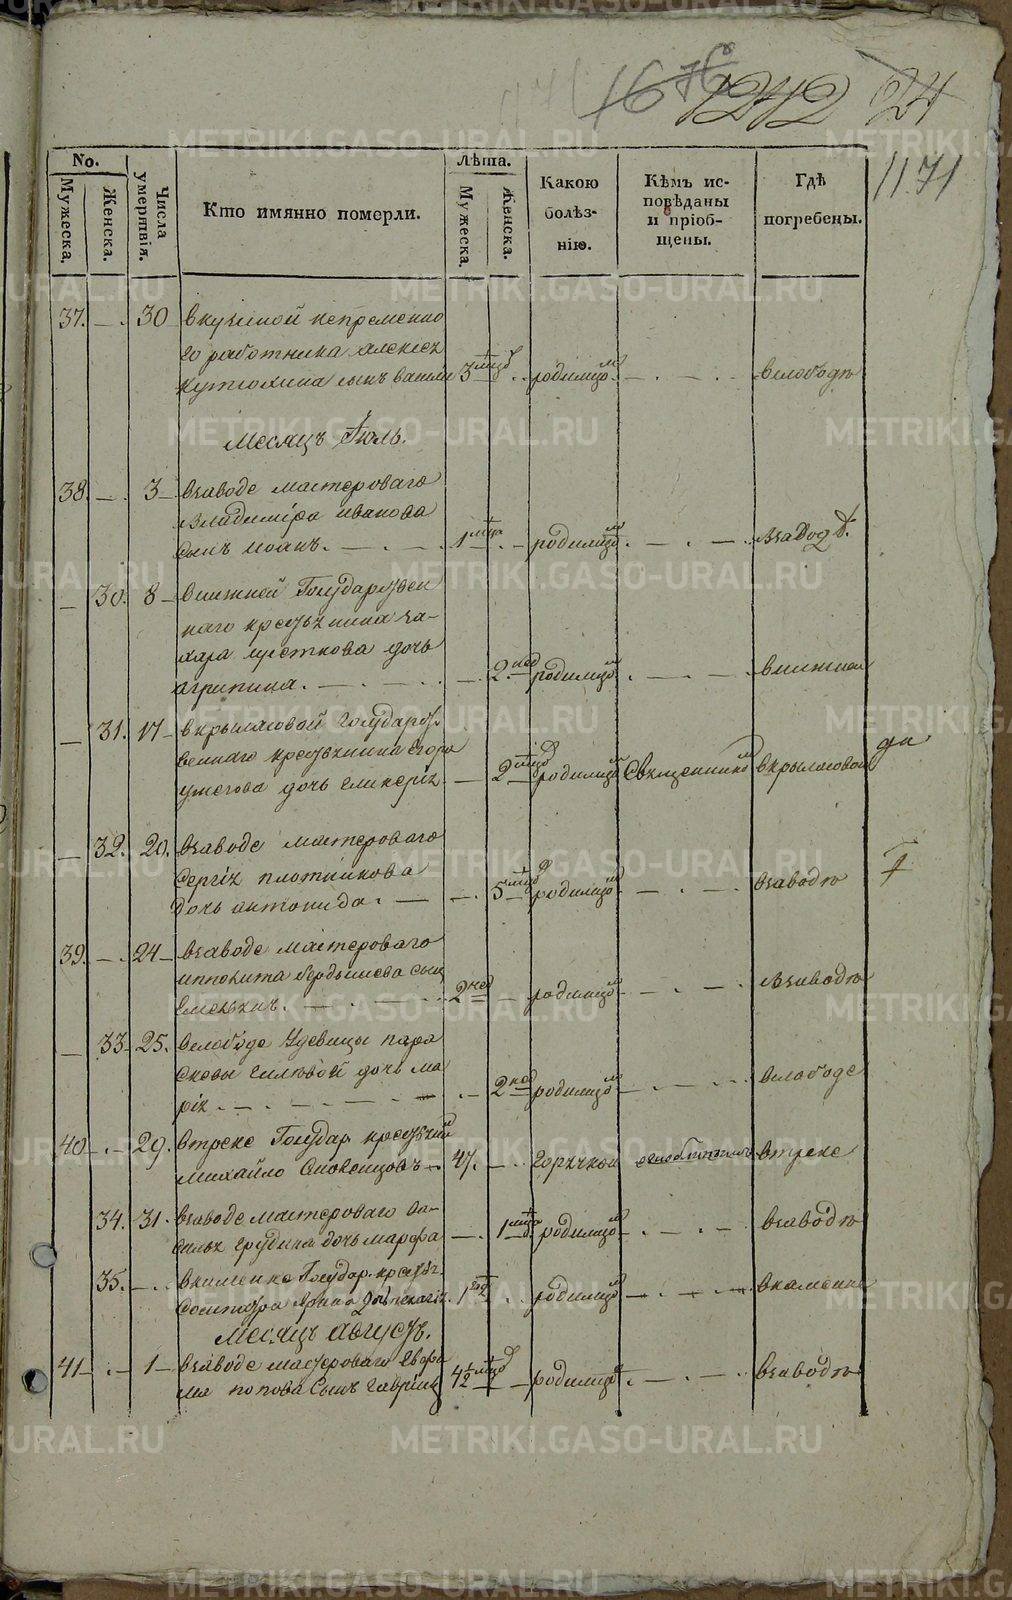 16 76 1242 24
1171
No.
Мужеска.
Женска.
Числа умертвія.
Кто имянно померли.
Лѣта.
Мужеска.
Женска.
Какою болѣз-нію.
Кѣмъ ис-повѣданы и пріоб-щены.
Гдѣ погребены.
37. — . 30 вкушиной непременно
го работника алексея
кутюхина сынъ васили 3 мцъ . родимцо . — . — вслободѣ
Месяцъ Іюль.
38. — . 3 — взаводе мастероваго
владиміра иванова
сынъ иоанъ. — . — 1 мца . — родимцо . — . — взаводѣ.
— 30. 8 — внижней Государствен
наго крестьянина за-
хара дочь
агрипина. — . — . 2. нед родимцо . — . — внижней
— 31. 17 — вкрыласовой государст.
веннаго крестьянина Егора
ужегова дочь гликерія — 2 мцъ родимцо Священнико вкрыласовой
да
— 32. 20. взаводе мастероваго
Сергія плотникова
дочь антонида . — . 5 мцъ родимцо — . — взаводѣ
39. — . 24 — взаводе мастероваго
ипполита бердышева сынъ
Емельянъ. — . — 2 нед — родимцо — . — взаводѣ
— 33 — 25. вслободе Удовицы пара
скевы дочь ма
рія . — . — . — 2 нед родимцо — . — вслободе
40 — . — 29. втреке Государ крестьянин
михайло 47. — горячкой втреке
34. 31. взаводе мастероваго ва-
силья грудина дочь марфа — . 1 мца родимцо — . — взаводѣ
35. — . вкаменке Государ. крестьян.
дочь 1 год . родимцо — . — вкаменке
месяцъ августъ.
41 — . — 1 — взаводе мастероваго Евфи
мия попова Сынъ гаврііл 4 1/2 мцъ — родимцо . — . — взаводѣ
METRIKI.GASO-URAL.RU